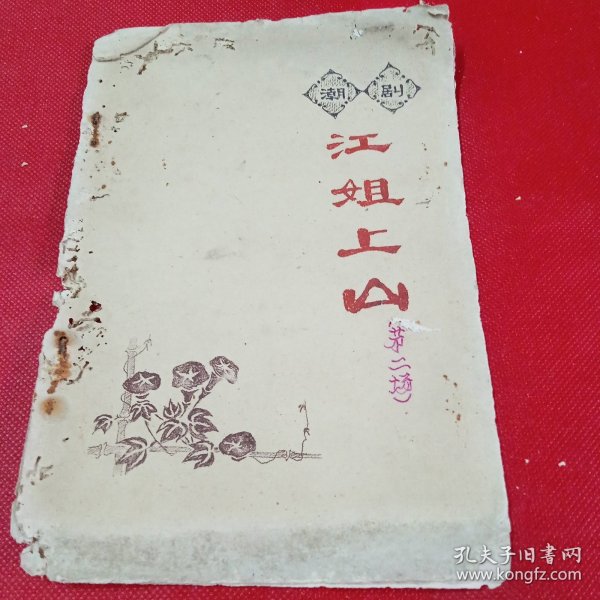 潮剧
江姐上山
(第二场)
孔夫子旧书网
www.kongfz.com